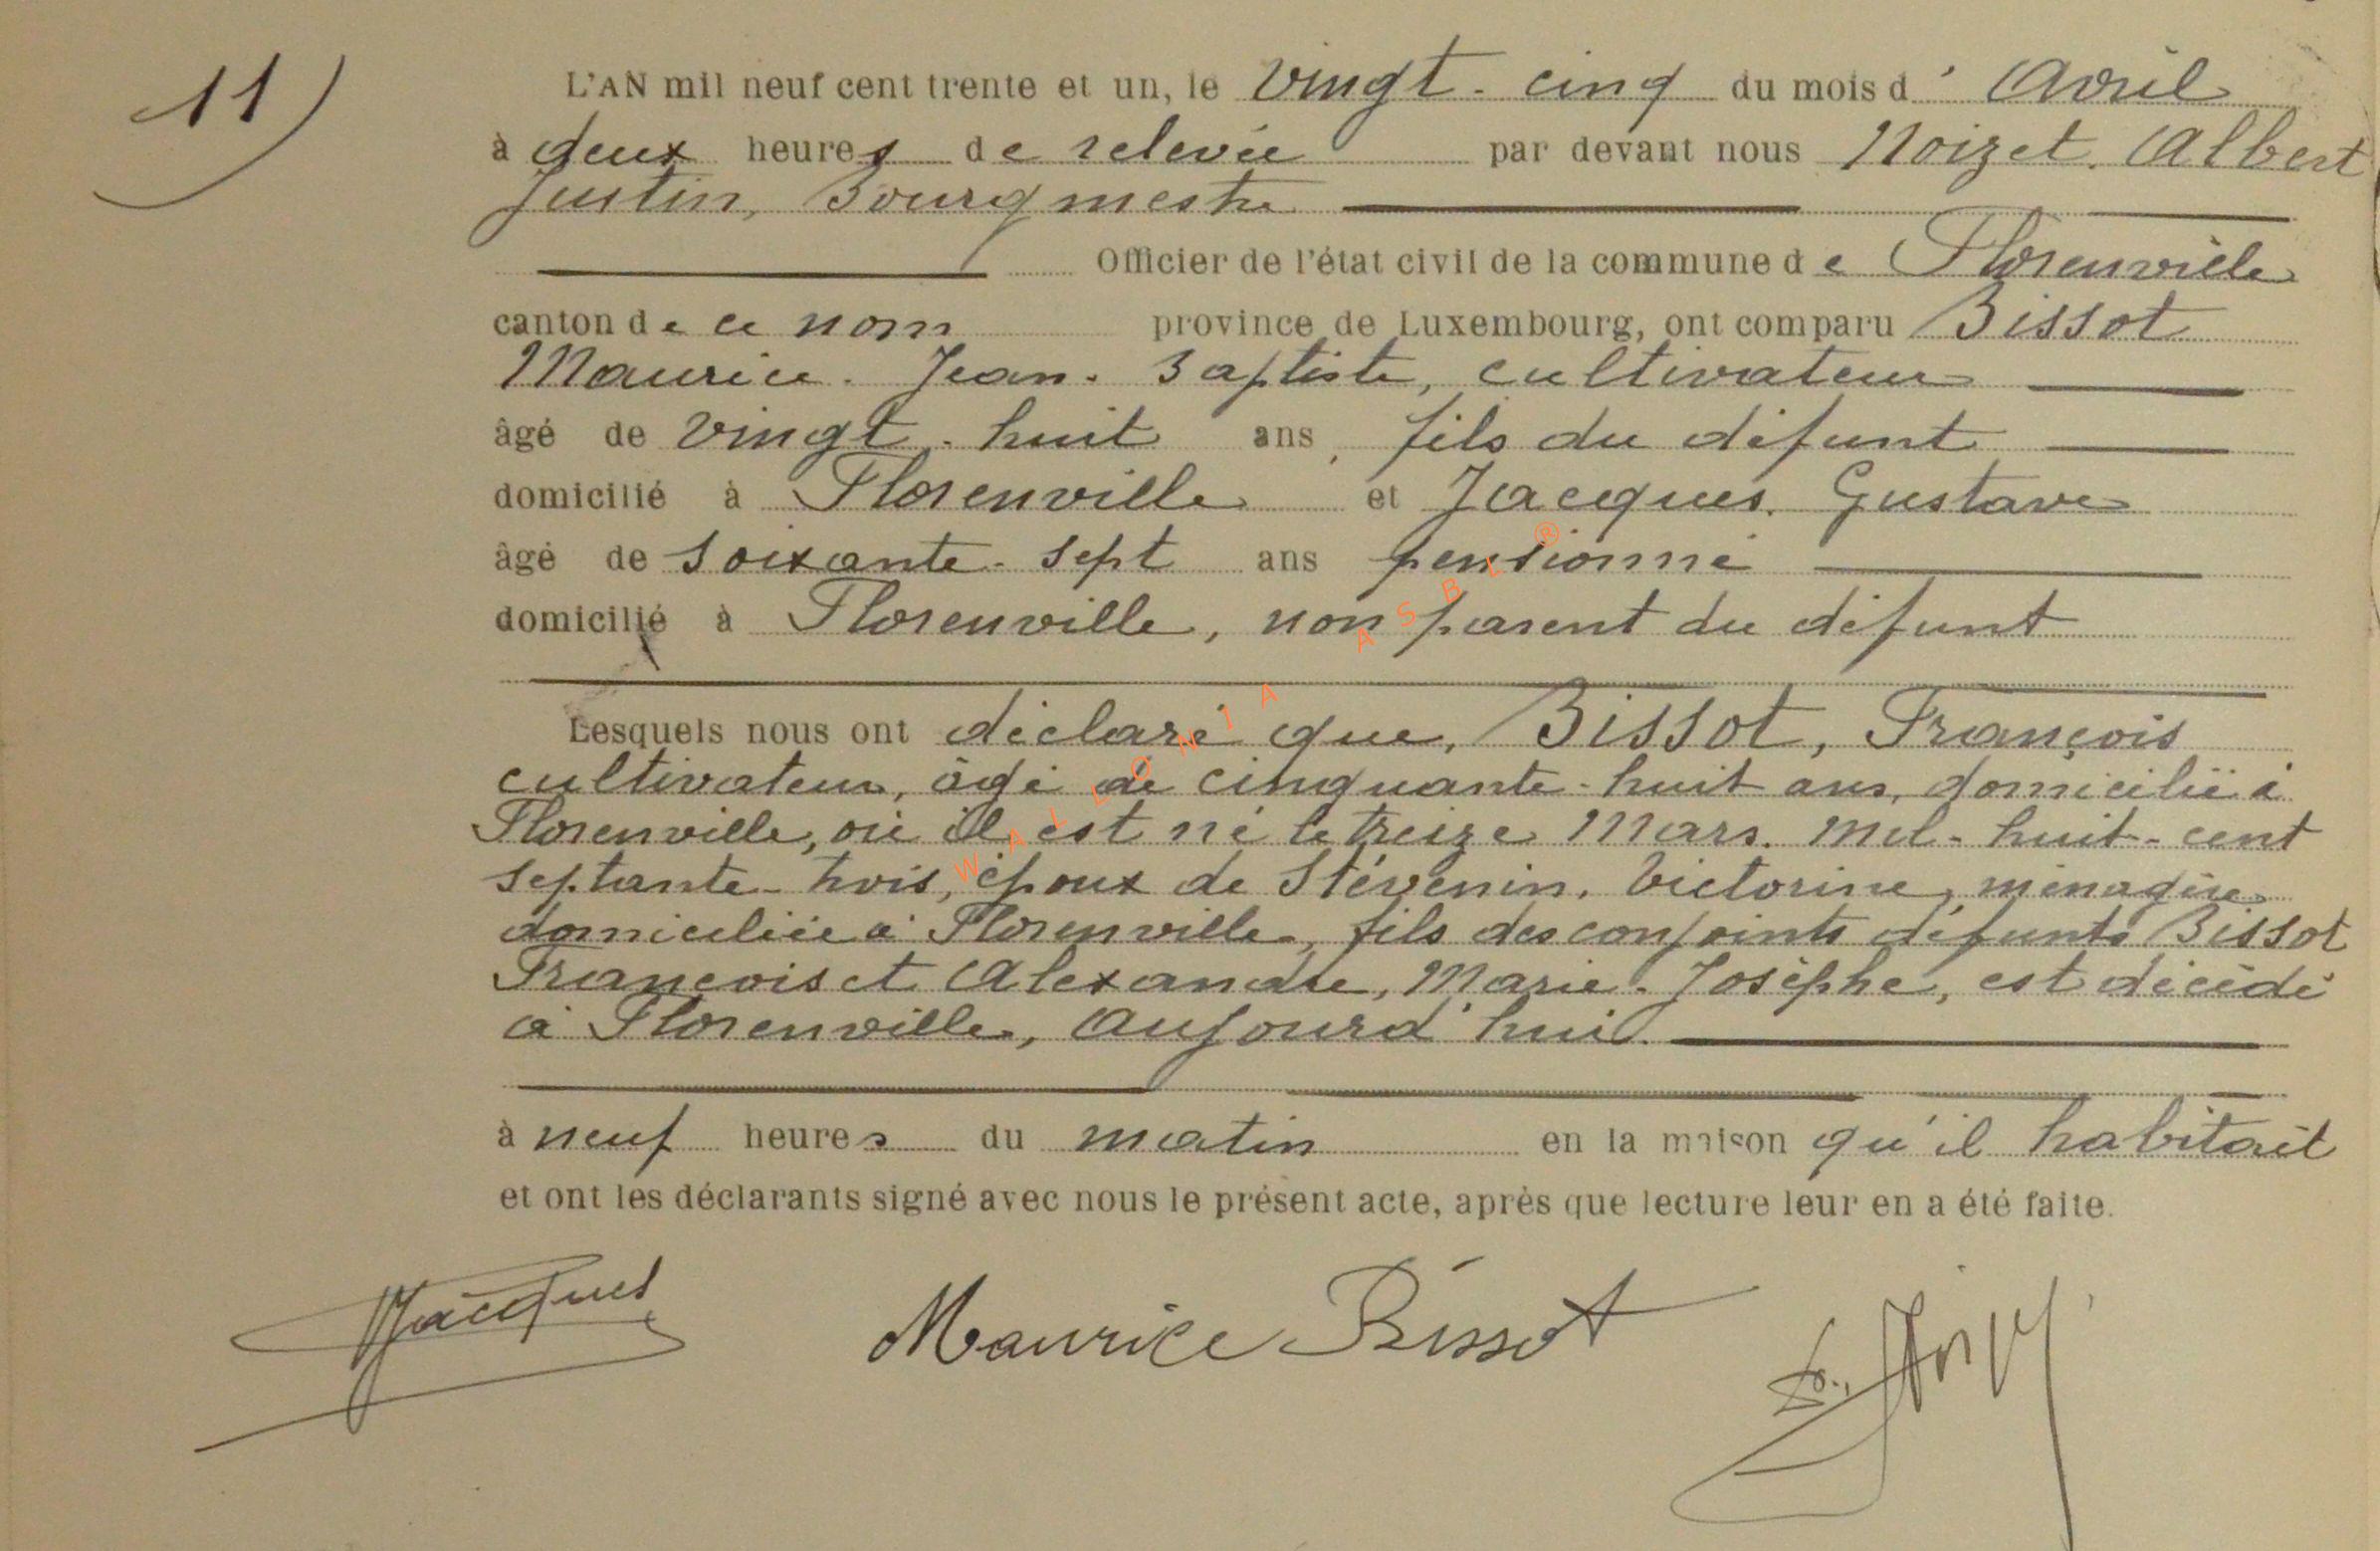 11)
L'AN mil neuf cent trente et un, le vingt-cinq du mois d'Avril
à deux heures de relevée par devant nous Noizet. Albert
Justin, Bourgmestre
Officier de l'état civil de la commune de Florenville
canton de ce nom province de Luxembourg, ont comparu Bissot
Maurice. Jean. Baptiste, cultivateur
âgé de vingt-huit ans, fils du défunt
domicilié à Florenville et Jacques. Gustave
âgé de soixante-sept ans pensionné
domicilié à Florenville, non parent du défunt
Lesquels nous ont déclaré que, Bissot, François
cultivateur, âgé de cinquante-huit ans, domicilié à
Florenville, où il est né le treize Mars. mil-huit-cent
septante-trois, époux de Stévenin. Victorine, ménagère
domiciliée à Florenville, fils des conjoints défunts Bissot
François et Alexandre, Marie-Josèphe, est décédé
à Florenville, aujourd'hui.
à neuf heures du matin en la maison qu'il habitait
et ont les déclarants signé avec nous le présent acte, après que lecture leur en a été faite.
Jacques Maurice Bissot
WALLONIA ASBL ®